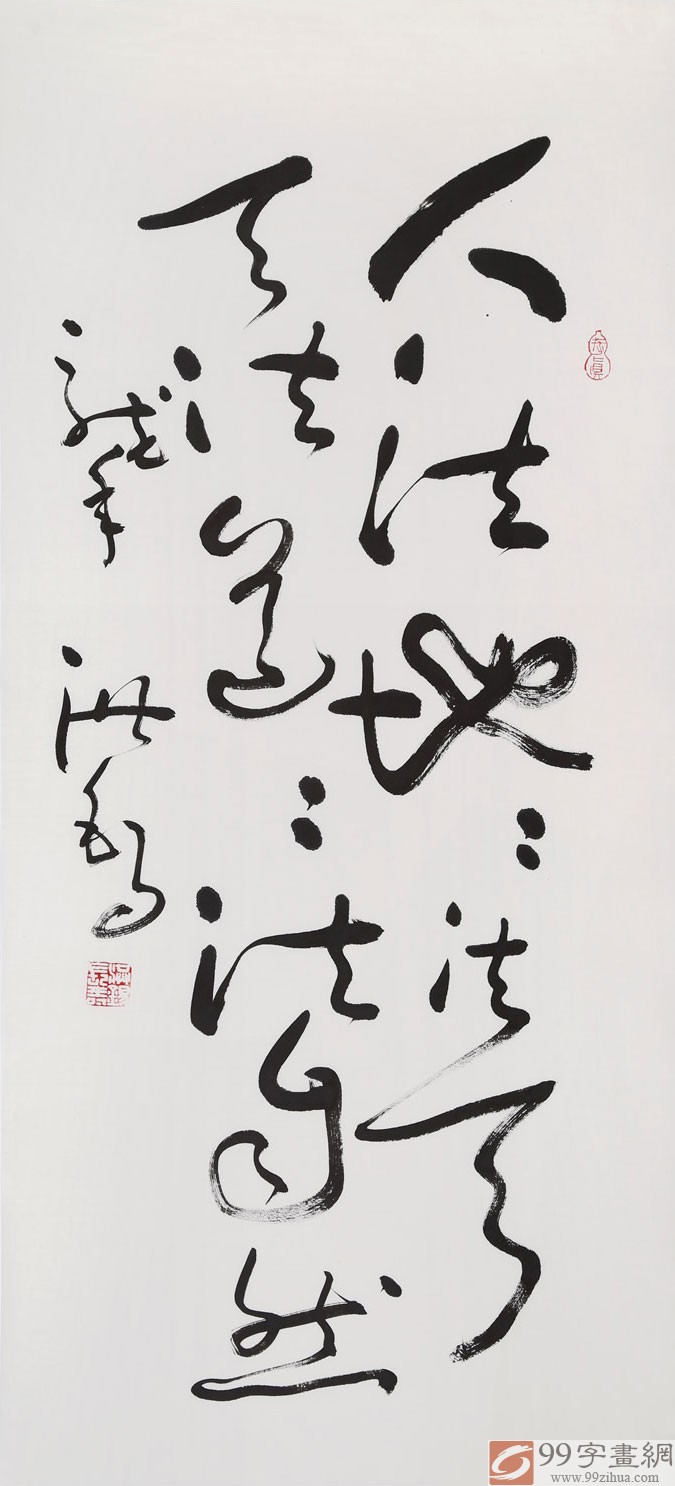 人法地〻法天
天法道〻法自然
99字畫網
www.99zihua.com